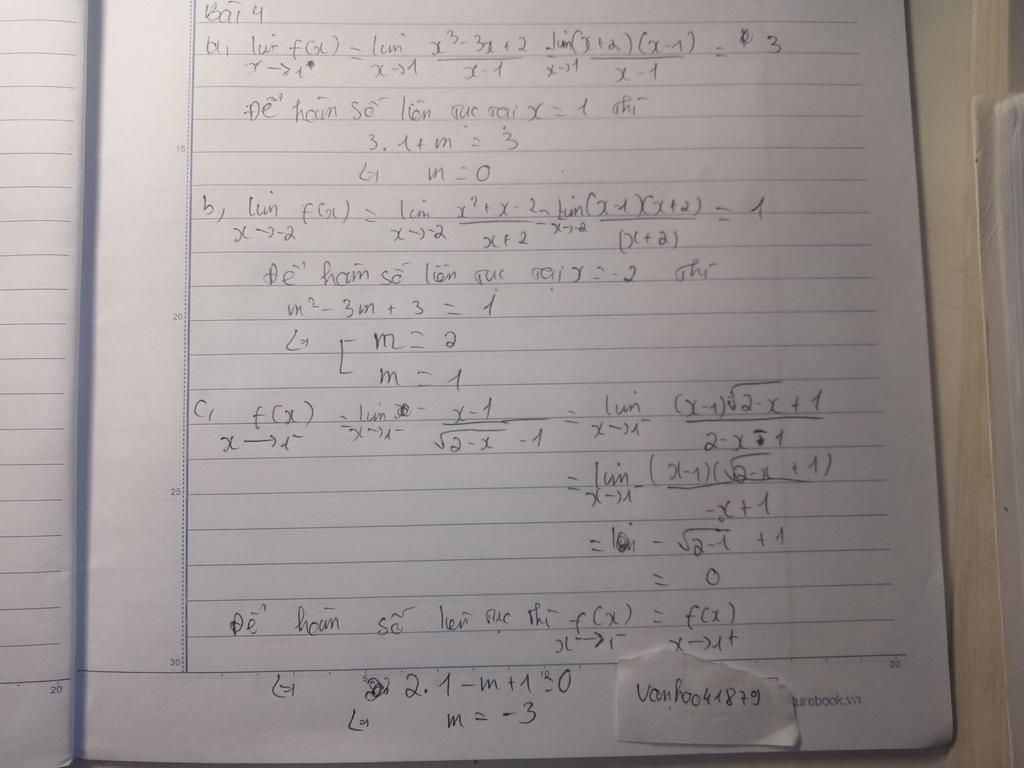 Bài 4
a, lim x→1 f(x) = lim x→1 x³ - 3x + 2 / x - 1 lim x→1 (x+2)(x-1) / x - 1 = 3
Để hàm số liên tục tại x = 1 thì
3. 1 + m = 3
<=> m = 0
b, lim x→-2 f(x) = lim x→-2 x² + x - 2 / x + 2 = lim x→-2 (x-1)(x+2) / (x+2) = 1
Để hàm số liên tục tại x = -2 thì
m² - 3m + 3 = 1
<=> [ m = 2
m = 1
c, f(x) x→1⁻ = lim x→1⁻ x-1 / √2-x - 1 = lim x→1⁻ (x-1)√2-x + 1 / 2-x-1
= lim x→1⁻ (x-1)(√2-x + 1) / -x+1
= - √2-1 + 1
= 0
Để hàm số liên tục thì f(x) x→1⁻ = f(x) x→1⁺
<=> 2. 1 - m + 1 = 0
<=> m = -3
Vanhao41879
turebook.vn
15
20
25
30
20
20